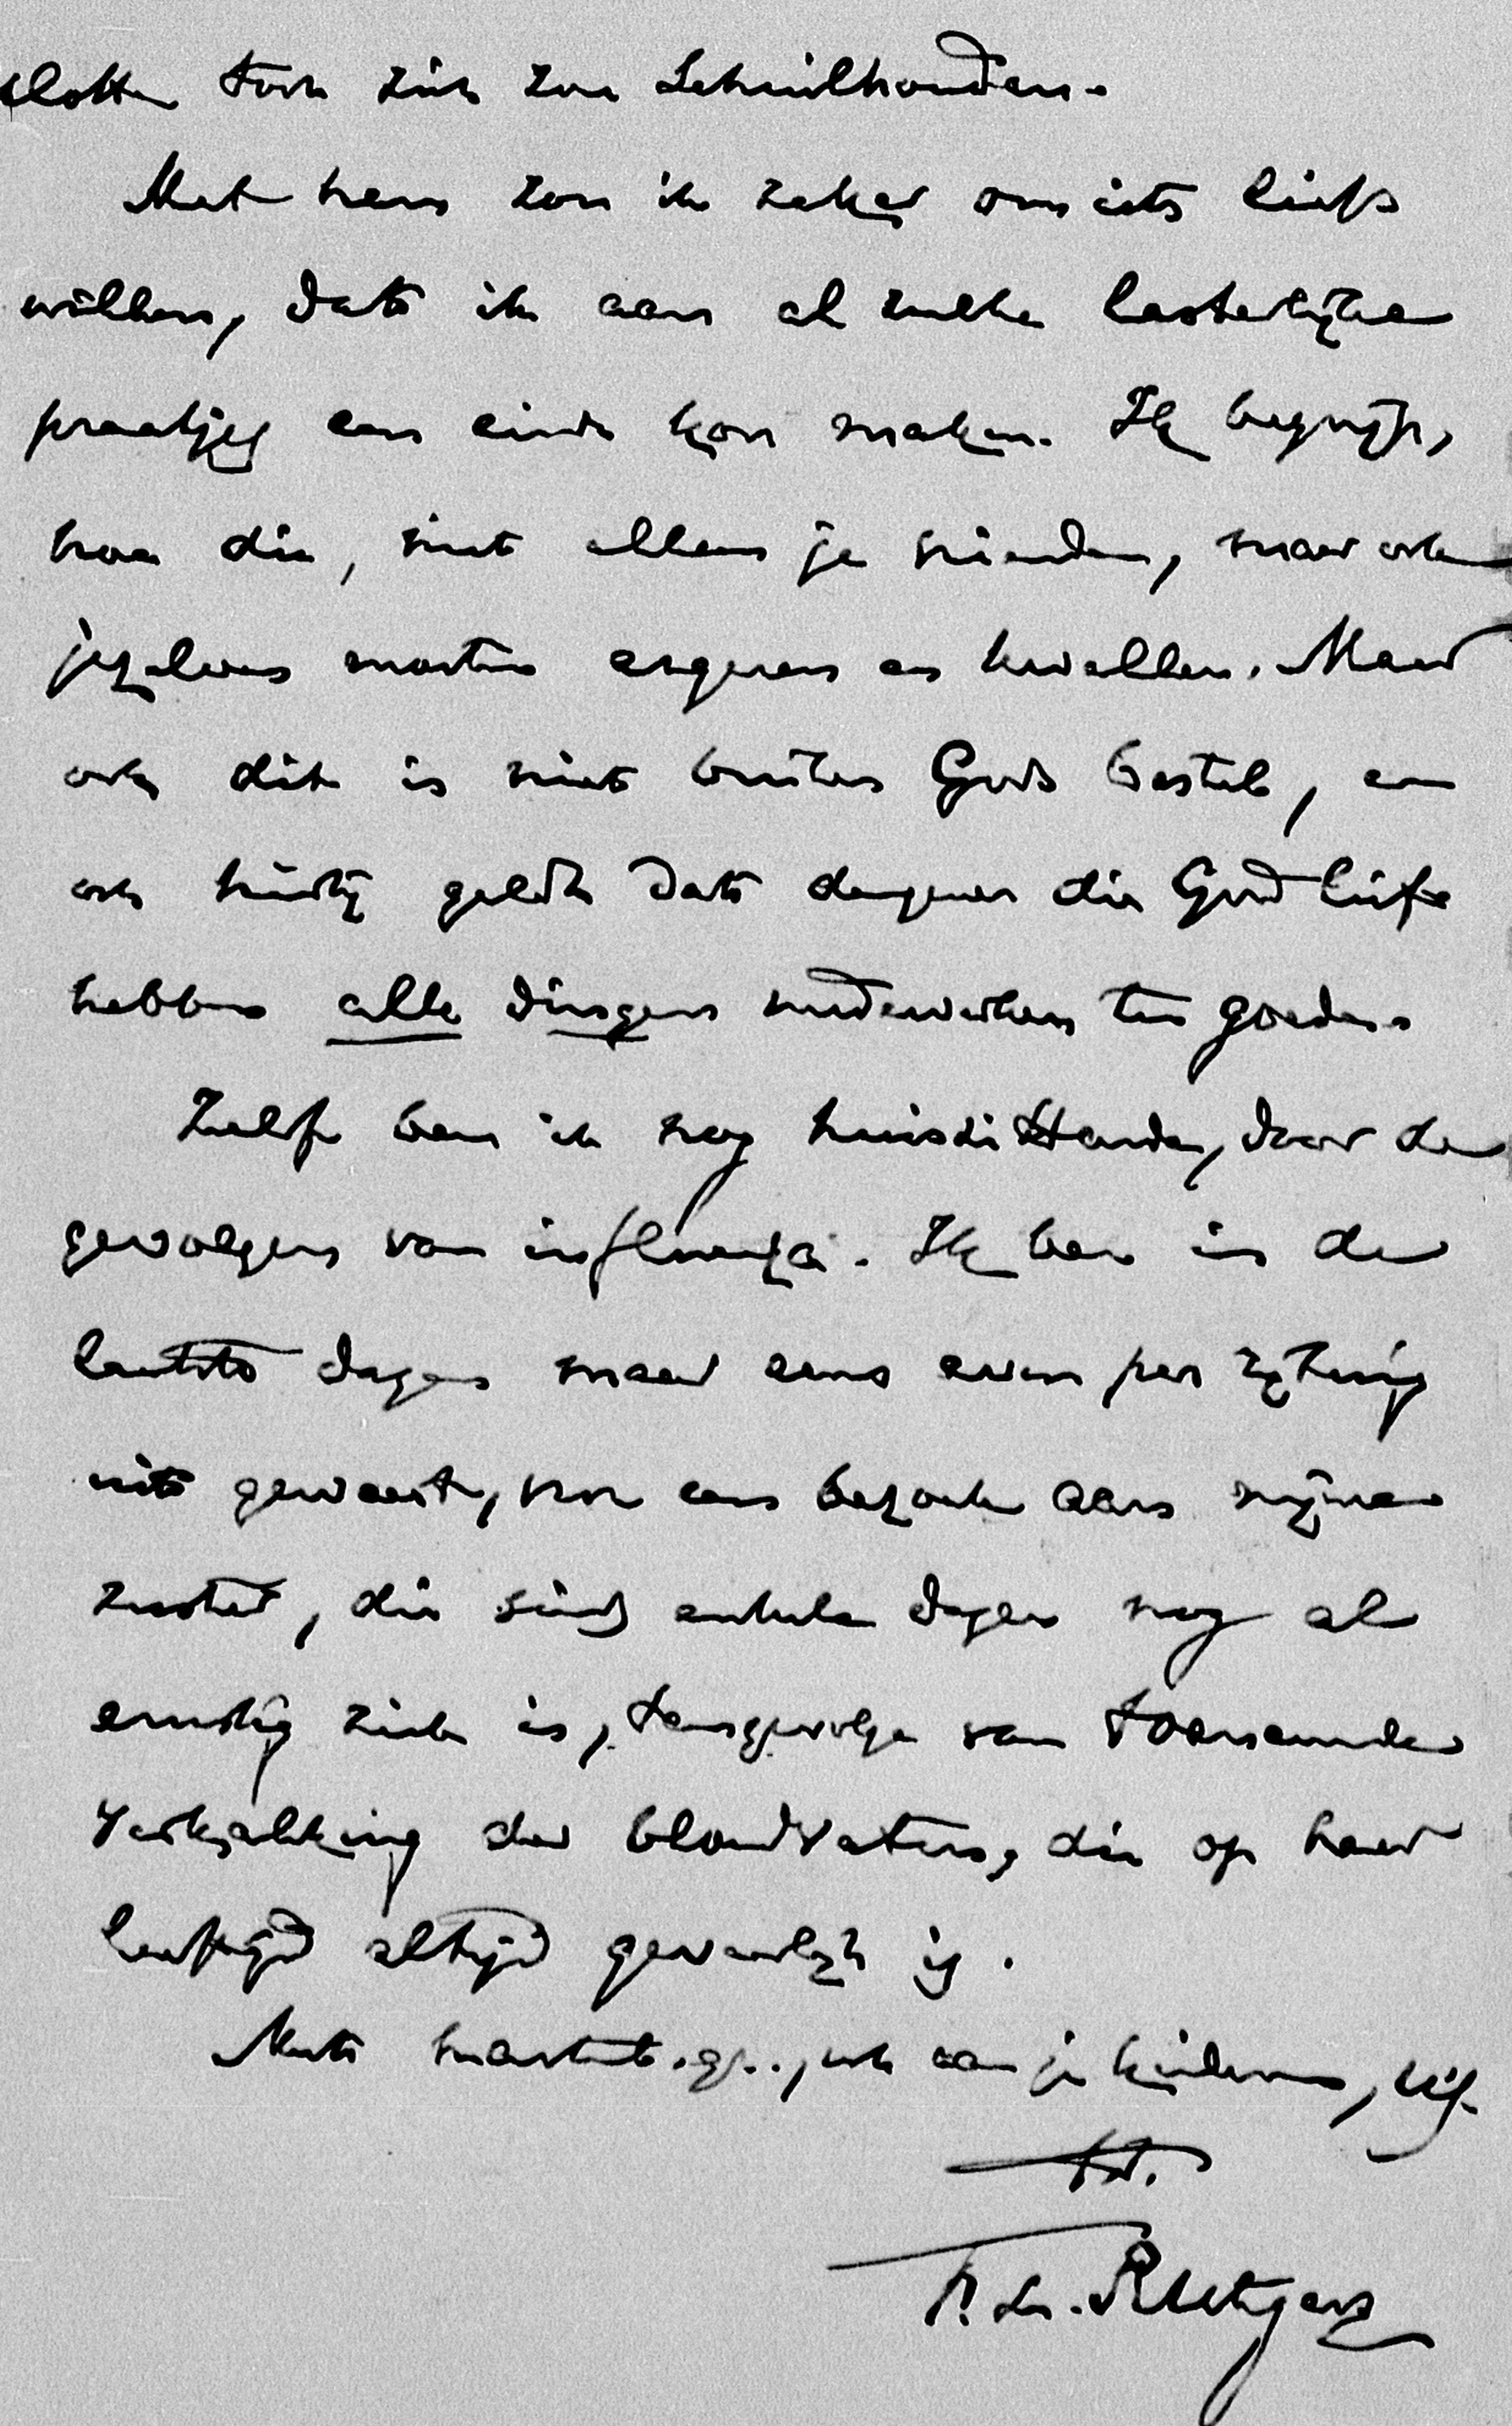 slotte toch zich zou schuilhouden.
Met hem zou ik zeker om iets liefs
willen, dat ik aan al zulke lasterlijke
praatjes een einde kon maken. Ik begrijp,
hoe die, niet alleen je vrienden, maar ook
jezelven moeten ergeren en kwellen. Maar
ook dit is niet buiten Gods bestel, en
ook hierbij geldt dat dengenen die God lief
hebben alle dingen medewerken ten goede.
Zelf ben ik nog huiszittende, door de
gevolgen van influenza. Ik ben in de
laatste dagen maar eens even per rijtuig
uit geweest, voor een bezoek aan mijne
zuster, die sinds enkele dagen nog al
ernstig ziek is, tengevolge van toenemende
verkalking der bloedvaten, die op haar
leeftijd altijd gevaarlijk is.
Met hartel. gr., ook aan je kinderen,
F. L. Rutgers